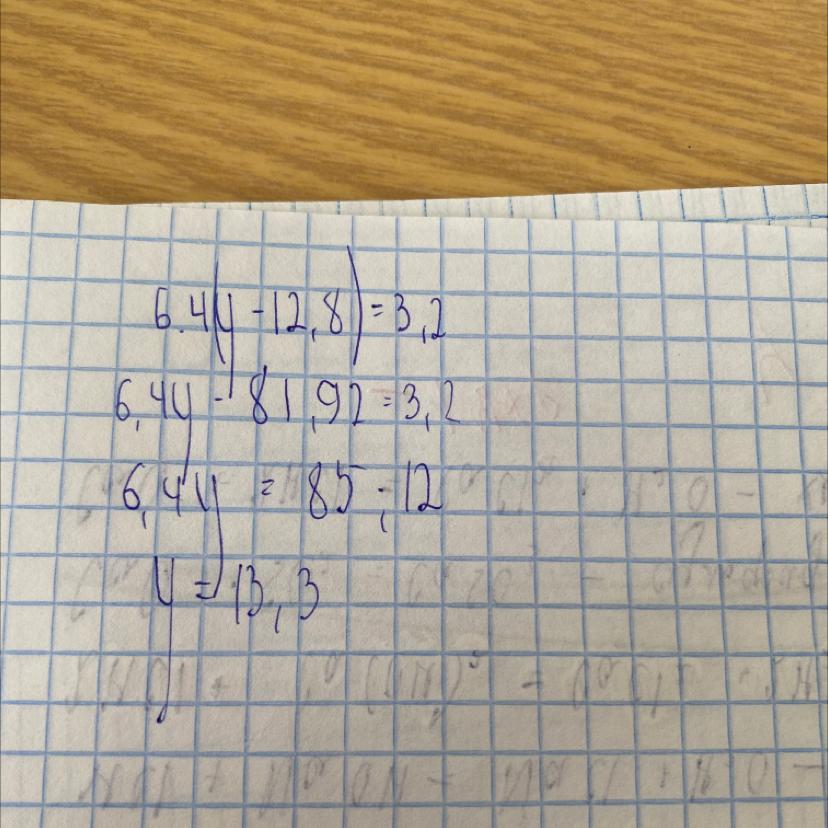 6.4(y-12,8)=3,2
6,4y - 81,92=3,2
6,4y = 85,12
y = 13,3